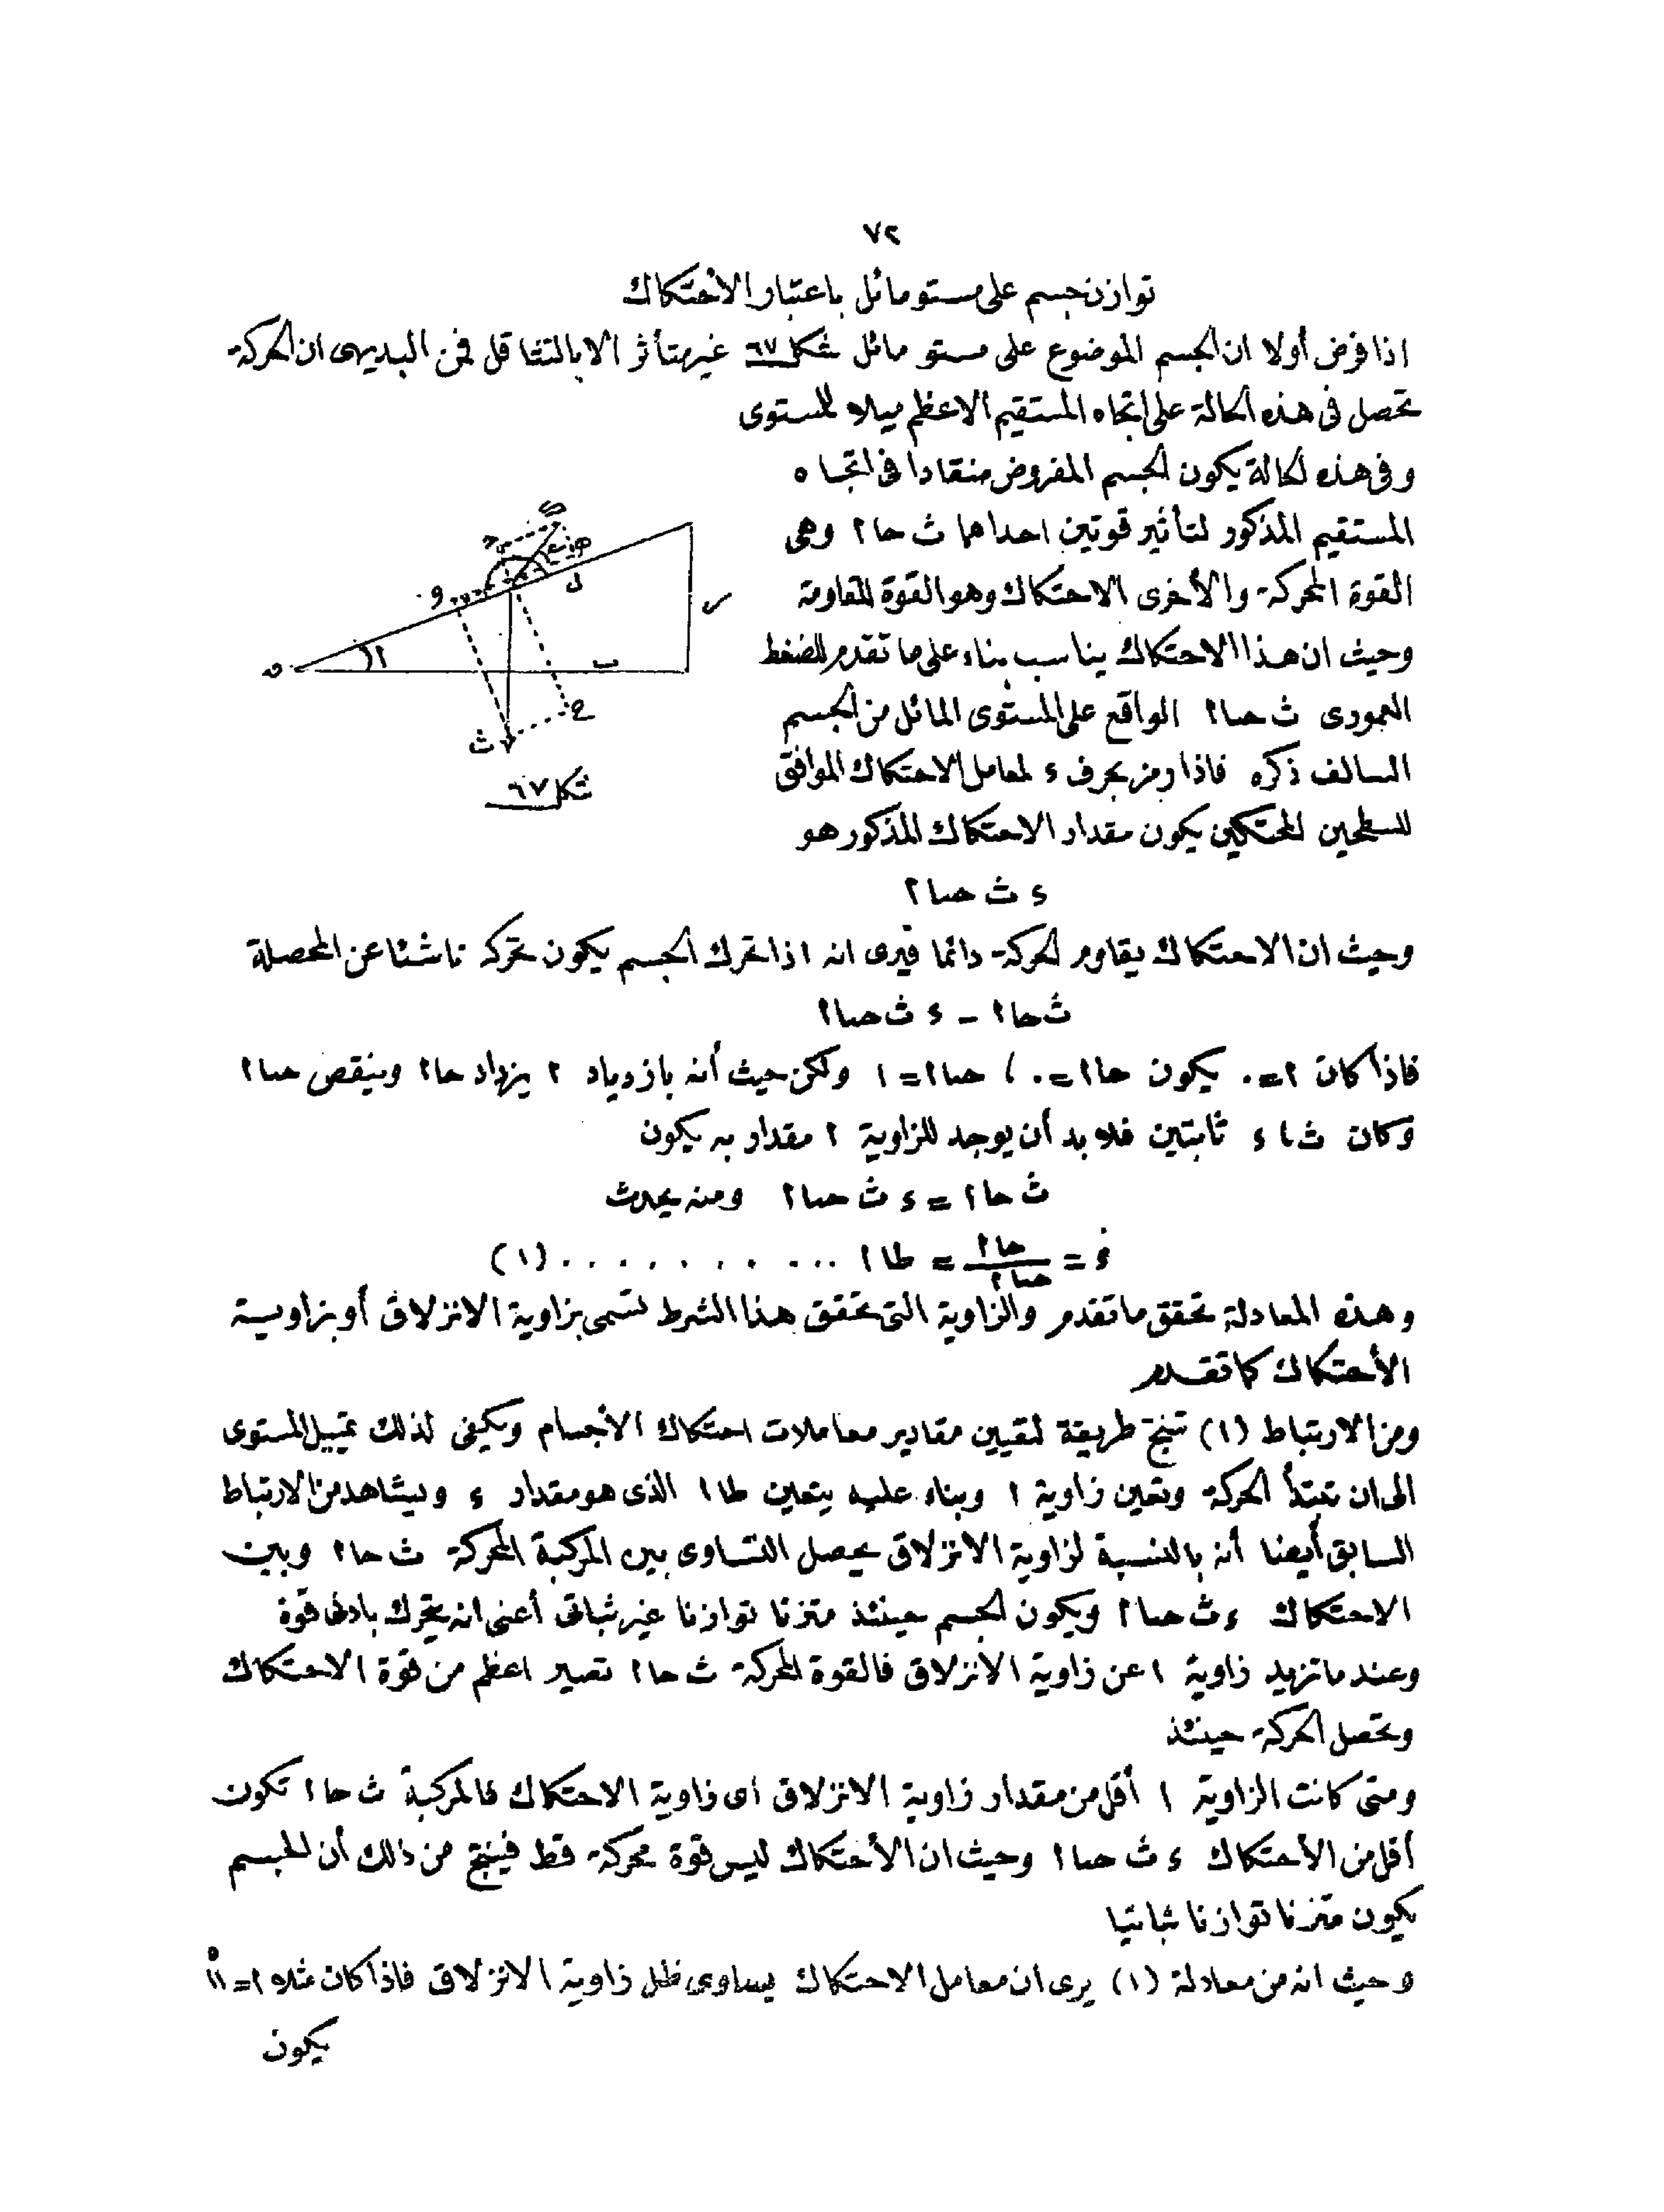 ٧٢
توازن جسم على مستو مائل باعتبار الاحتكاك
اذا فرض أولا ان الجسم الموضوع على مستو مائل شكل ٦٧ غير متأثر الا بالتثاقل فمن البديهى ان الحركة
تحصل فى هذه الحالة على اتجاه المستقيم الاعظم ميلا للمستوى
وفى هذه الحالة يكون الجسم المفروض منقادا فى اتجاه
المستقيم المذكور لتأثير قوتين احداهما ث حا ا وهى
القوة المحركة والأخرى الاحتكاك وهو القوة المقاومة
وحيث ان هذا الاحتكاك يناسب بناء على ما تقدم للضغط
العمودى ث حتا ا الواقع على المستوى المائل من الجسم
السالف ذكره فاذا رمز بحرف ء لمعامل الاحتكاك الموافق
للسطحين المحتكين يكون مقدار الاحتكاك المذكور هو
ء ث حتا ا
وحيث ان الاحتكاك يقاوم الحركة دائما فيرى انه اذا تحرك الجسم يكون تحركه ناشئا عن المحصلة
ث حا ا − ء ث حتا ا
فاذا كان ا = ٠ يكون حا ا = ٠ ، حتا ا = ١ ولكن حيث أنه بازدياد ا يزداد حا ا وينقص حتا ا
وكان ث ، ء ثابتين فلا بد أن يوجد للزاوية ا مقدار به يكون
ث حا ا = ء ث حتا ا ومنه يحدث
ء = حا ا / حتا ا = طا ا ........... (١)
وهذه المعادلة تحقق ما تقدم والزاوية التى تحقق هذا الشرط تسمى بزاوية الانزلاق أو بزاوية
الأحتكاك كما تقدم
ومن الارتباط (١) تنتج طريقة لتعيين مقادير معاملات احتكاك الأجسام ويكفى لذلك تمييل المستوى
الى ان تبتدأ الحركة وتعين زاوية ا وبناء عليه يتعين طا ا الذى هو مقدار ء ويشاهد من الارتباط
السابق أيضا أنه بالنسبة لزاوية الانزلاق يحصل التساوى بين المركبة المحركة ث حا ا وبين
الاحتكاك ء ث حتا ا ويكون الجسم حينئذ متزنا توازنا غير ثباتى أعنى انه يتحرك بادنى قوة
وعند ما تزيد زاوية ا عن زاوية الانزلاق فالقوة المحركة ث حا ا تصير اعظم من قوة الاحتكاك
وتحصل الحركة حينئذ
ومتى كانت الزاوية ا أقل من مقدار زاوية الانزلاق اى زاوية الاحتكاك فالمركبة ث حا ا تكون
أقل من الأحتكاك ء ث حتا ا وحيث ان الأحتكاك ليس قوة محركة قط فينتج من ذلك أن الجسم
يكون متزنا توازنا ثباتيا
وحيث انه من معادلة (١) يرى ان معامل الاحتكاك يساوى ظل زاوية الانزلاق فاذا كان مثلا ا = ١١°
يكون
و
ل
ر
ا
ب
ح
ث
شكل ٦٧